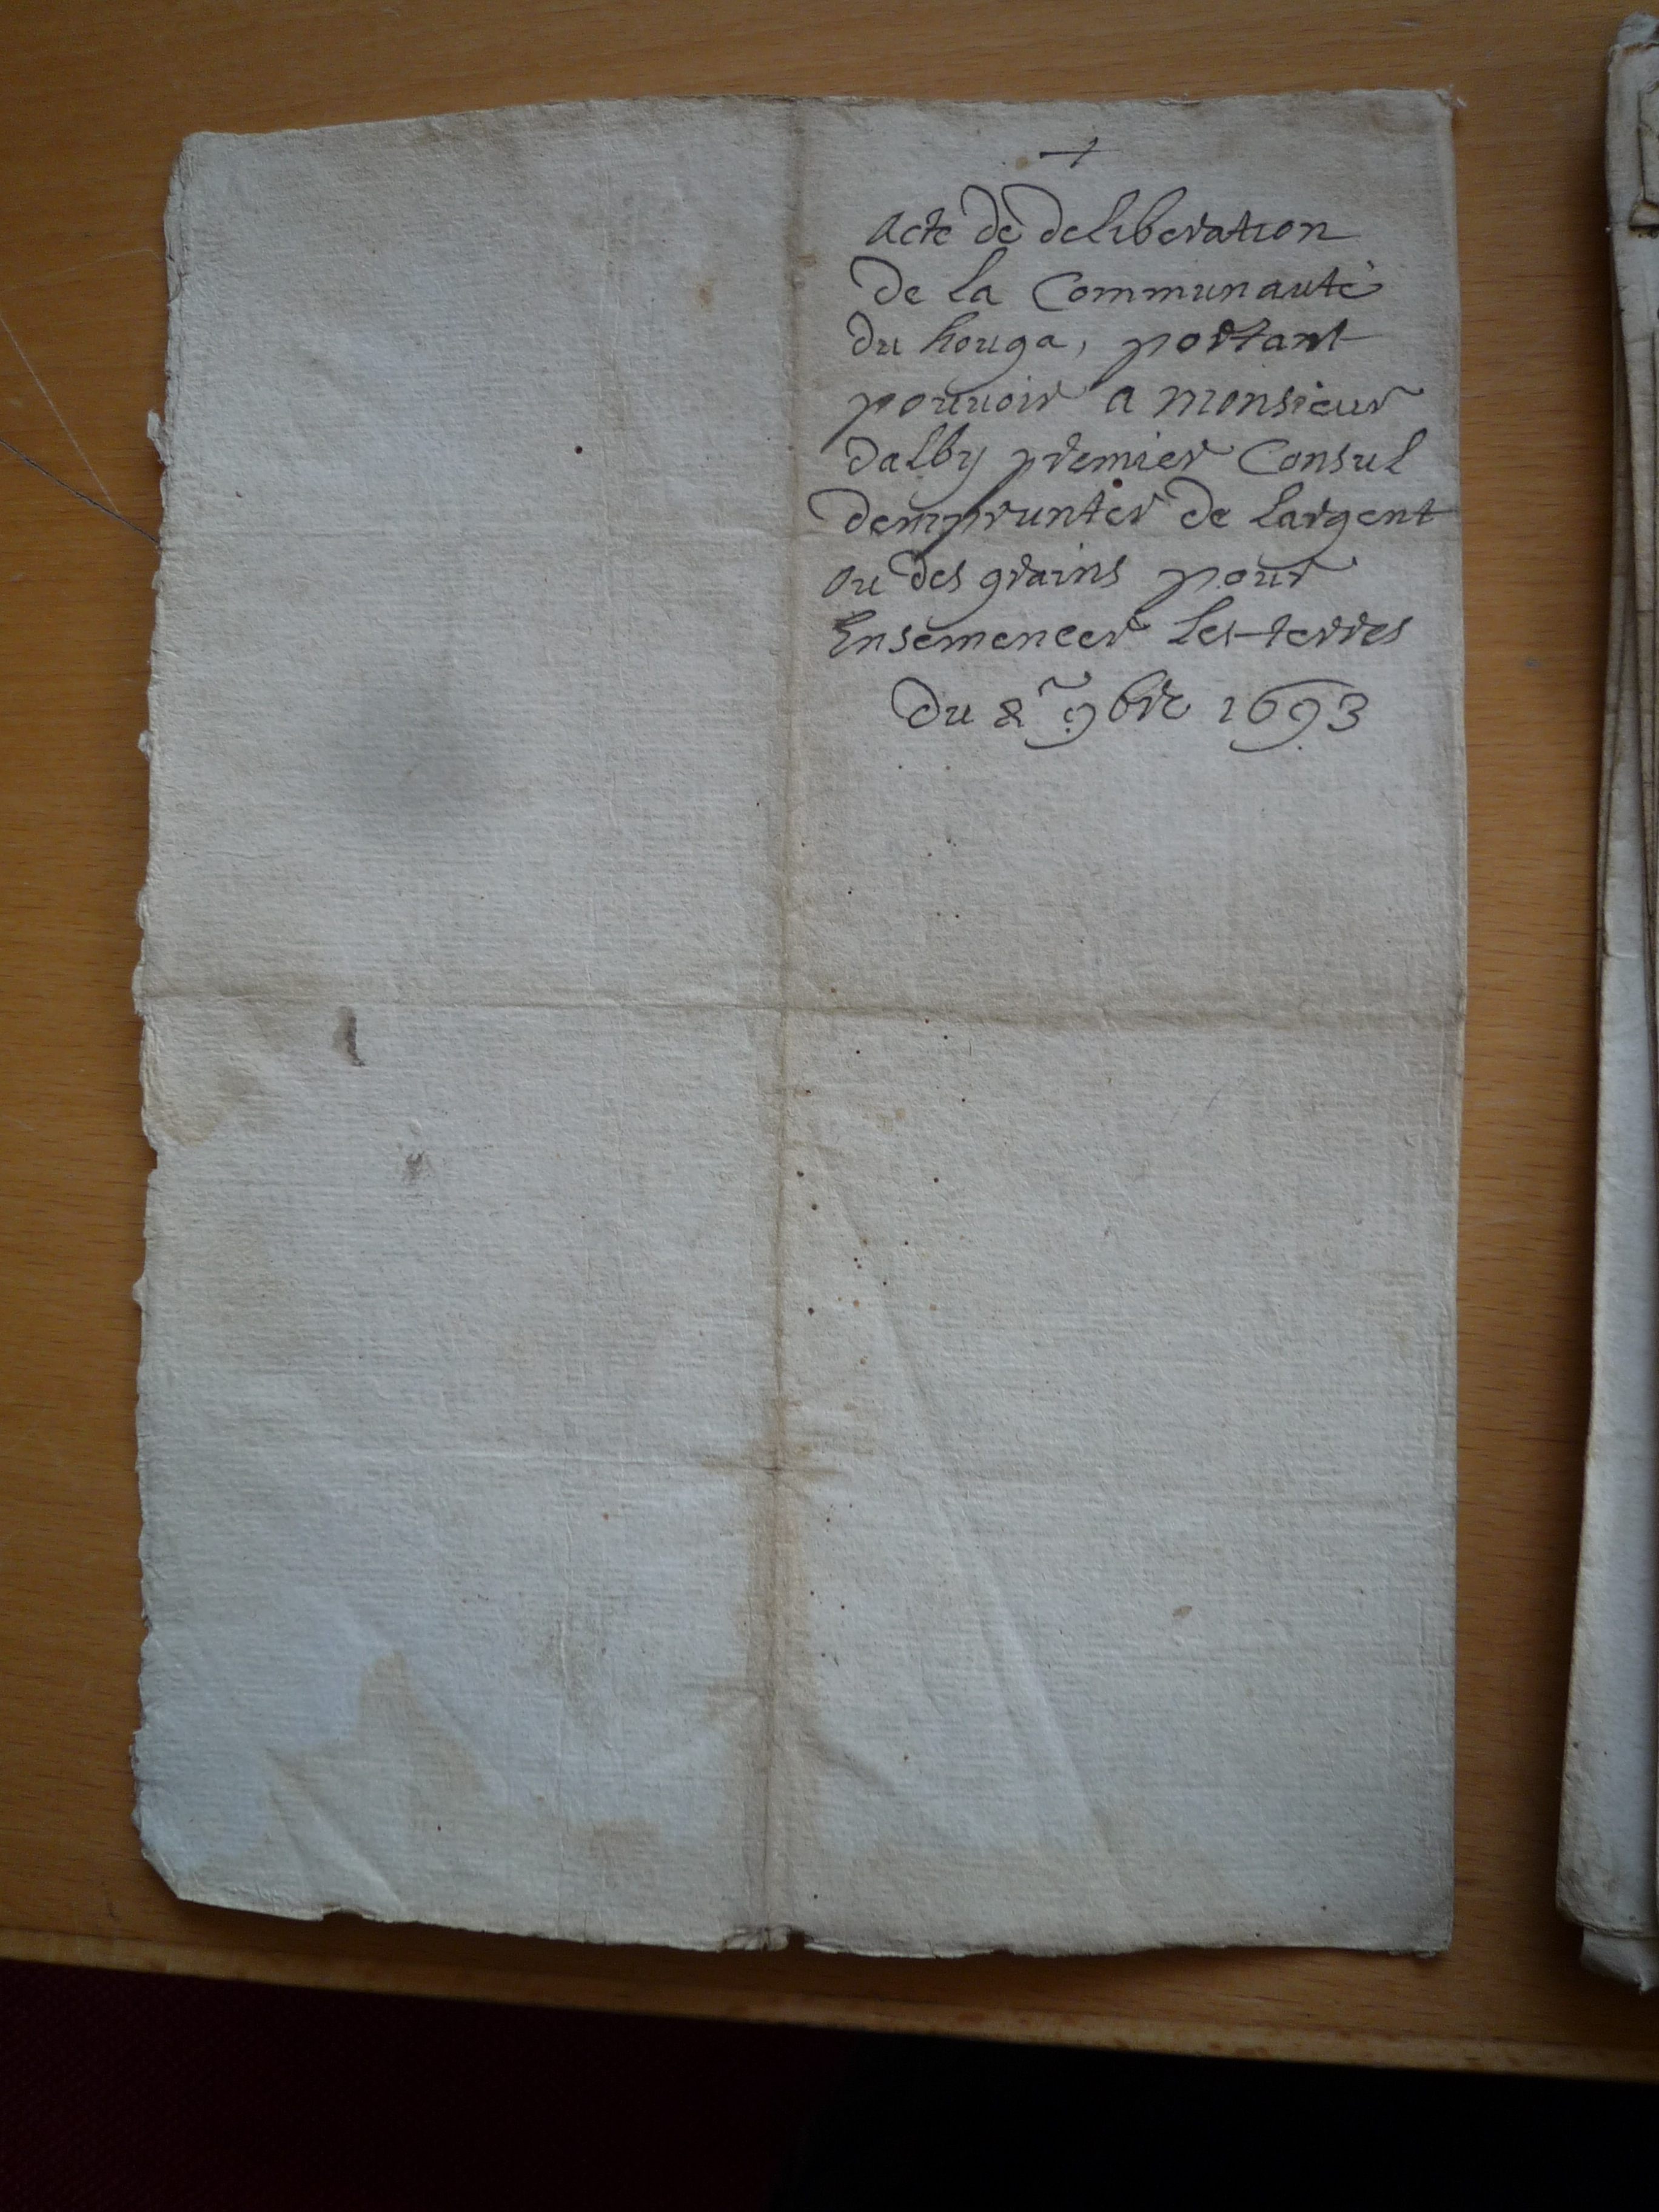 +
acte de deliberation
de la Communauté
du houga, portant
pouuoir a monsieur
dalby premier Consul
demprunter de largent
ou des grains pour
Ensemencer les terres
du 8e 9bre 1693